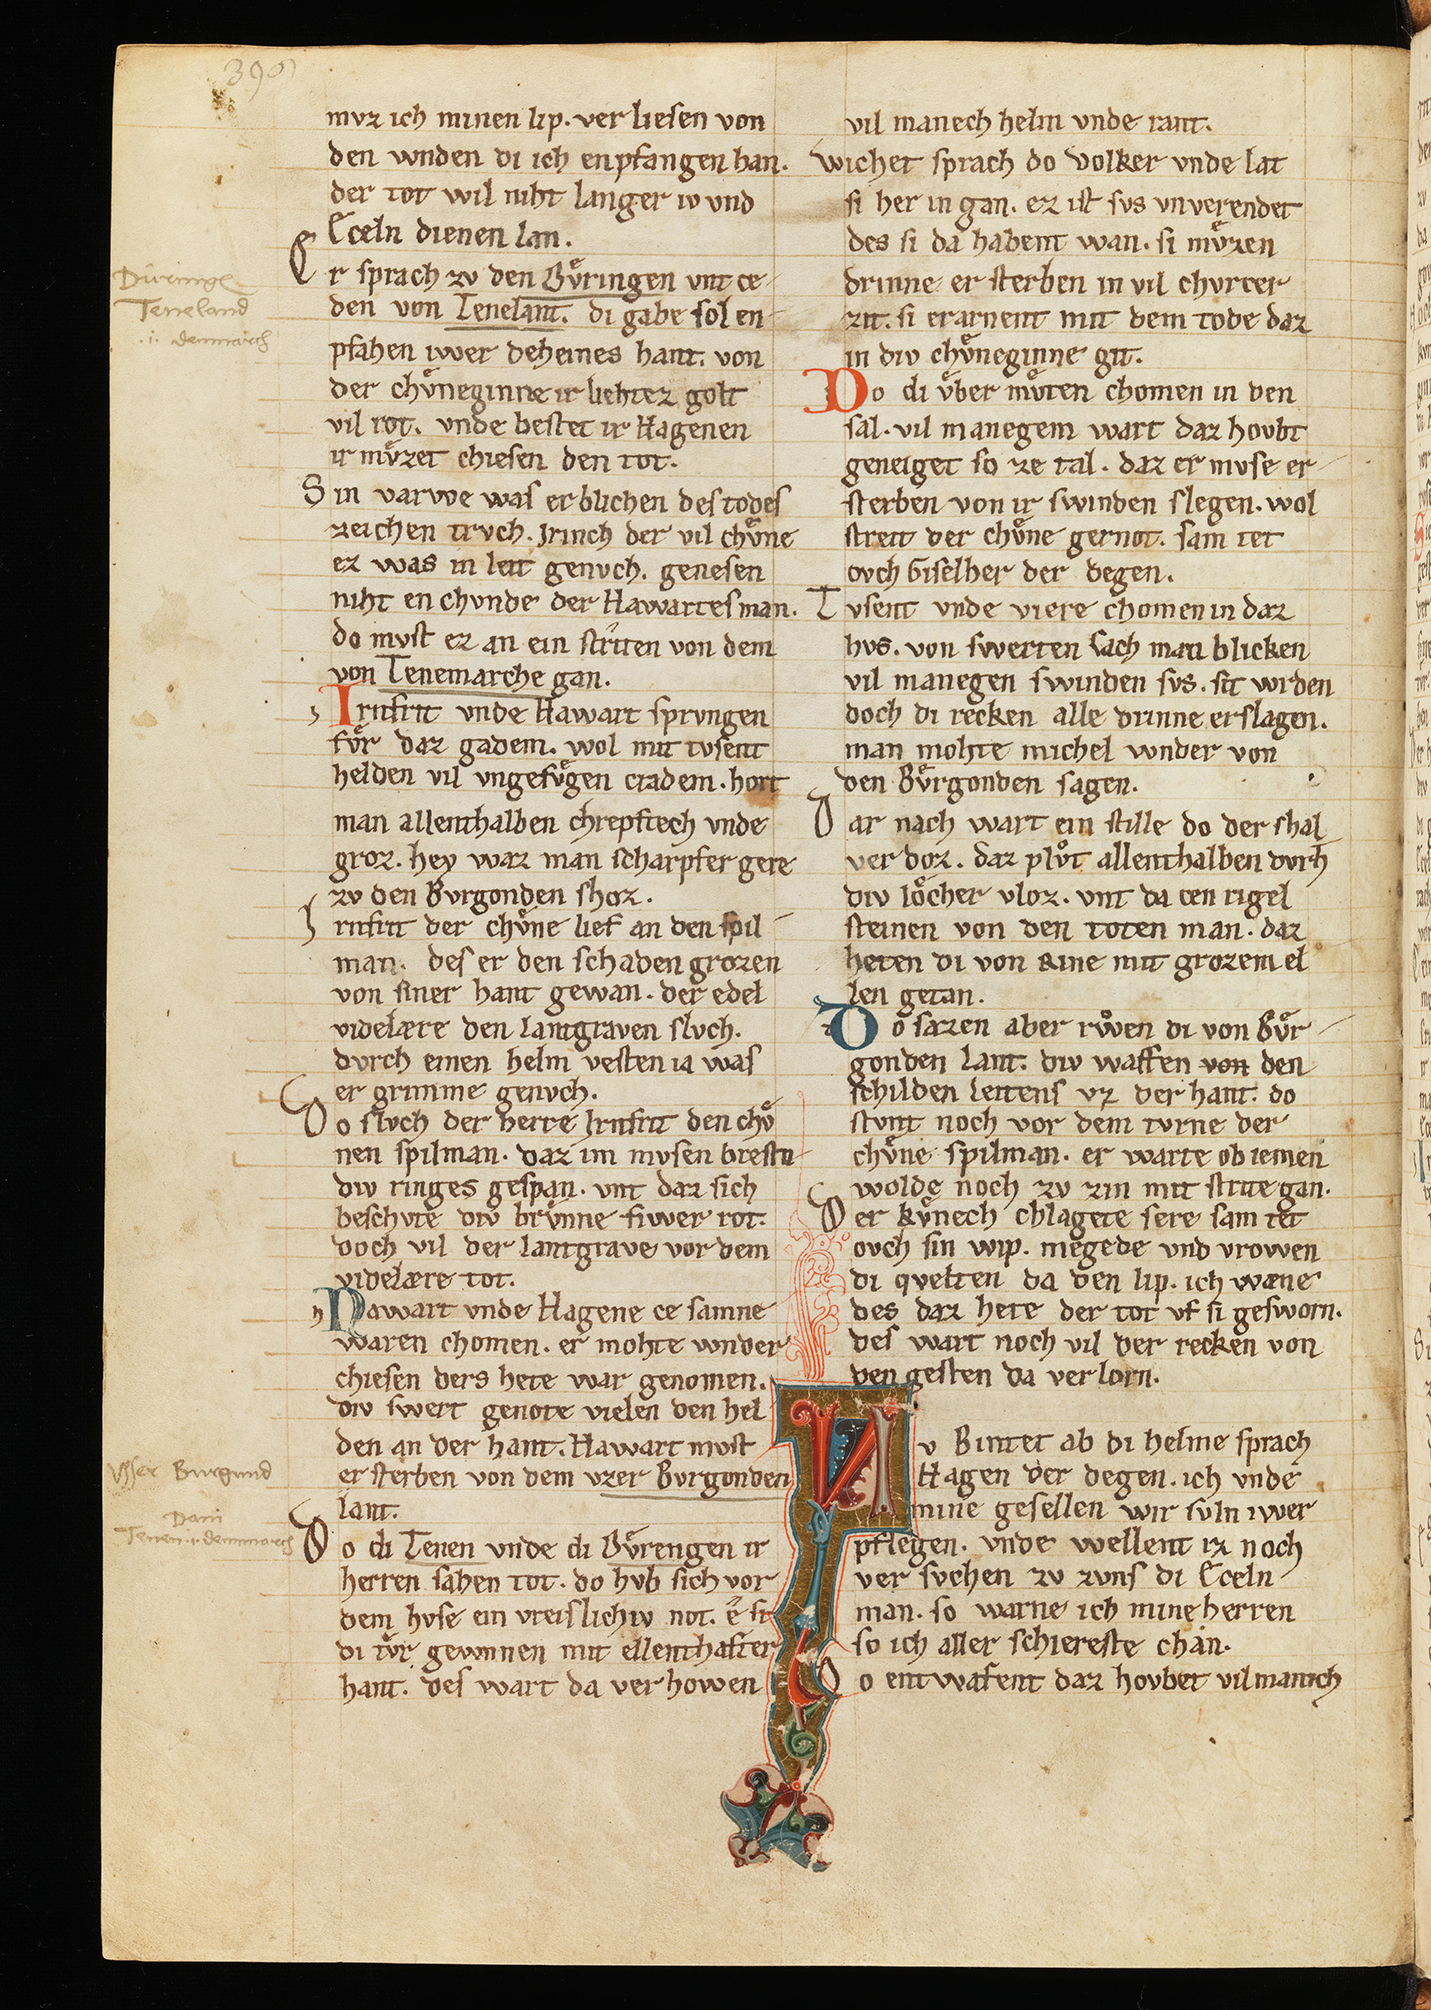 390
mvz ich minen lip. ver liesen von
den wnden di ich enpfangen han.
der tot wil niht langer iv und
Eceln dienen lan.
Er sprach zv den Dv̊ringen vnt ce
den von Tenelant. di gabe sol en
pfahen iwer deheines hant. von
der chv̊neginne ir liehtez golt
vil rot. vnde bestet ir Hagenen
ir mv̊zet chiesen den tot.
Sin varwe was erblichen des todes
zeichen trvch. Jrinch der vil chv̊ne
ez was in leit genvch. genesen
niht en chvnde der Hawartes man.
do mvst ez an ein striten von dem
von Tenemarche gan.
Irnfrit vnde Hawart sprvngen
fv̊r daz gadem. wol mit tvsent
helden vil vngefv̊gen cradem. hort
man allenthalben chrepftech vnde
groz. hey waz man scharpfer gere
zv den Bvrgonden shoz.
Irnfrit der chv̊ne lief an den spil
man. des er den schaden grozen
von siner hant gewan. der edel
videlære den lantgraven slvch.
dvrch einen helm vesten ia was
er grimme genvch.
Do slvch der herre Irnfrit den chv̊
nen spilman. daz im mvsen bresten
div ringes gespan. vnt daz sich
beschvte div brv̊nne fiwer rot.
doch vil der lantgrave vor dem
videlære tot.
Hawart vnde Hagene ce samne
waren chomen. er mohte wnder
chiesen ders hete war genomen.
div swert genote vielen den hel
den an der hant. Hawart mvst
ersterben von dem vzer Bvrgonden
lant.
Do di Tenen vnde di Dv̊rengen ir
herren sahen tot. do hvb sich vor
dem hvse ein vreislichiv not. e si
di tv̊r gewnnen mit ellenthafter
hant. des wart da verhowen
Düringe
Teneland
.i. denmarch
Vsser Burgund
Dani
Tenen .i. dennmarch
vil manech helm vnde rant.
Wichet sprach do Volker vnde lat
si her in gan. ez ist svs vnverendet
des si da habent wan. si mv̊zen
drinne ersterben in vil chvrcer
zit. si erarnent mit dem tode daz
in div chv̊neginne git.
Do di v̊ber mv̊ten chomen in den
sal. vil manegem wart daz hovbt
geneiget so ze tal. daz er mvse er
sterben von ir swinden slegen. wol
streit der chv̊ne gernot. sam tet
ovch Giselher der degen.
Tvsent vnde viere chomen in daz
hvs. von swerten sach man blicken
vil manegen swinden svs. sit wrden
doch di recken alle drinne erslagen.
man mohte michel wnder von
den Bv̊rgonden sagen.
Dar nach wart ein stille do der shal
verdoz. daz plv̊t allenthalben dvrh
div lo̊cher vloz. vnt da cen rigel
steinen von den toten man. daz
heten di von Rine mit grozem el
len getan.
Do sazen aber rv̊wen di von Bv̊r
gonden lant. div waffen von den
schilden leitens vz der hant. do
stvnt noch vor dem tvrne der
chv̊ne spilman. er warte ob iemen
wolde noch zv zin mit strite gan.
Der kv̊nech chlagete sere sam tet
ovch sin wip. megede vnd vrowen
di quelten da den lip. ich wæne
des daz hete der tot vf si gesworn.
des wart noch vil der recken von
den gesten da verlorn.
Nv Bintet ab di helme sprach
Hagen der degen. ich vnde
mine gesellen wir svln iwer
pflegen. vnde wellent iz noch
versvchen zv zvns di Eceln
man. so warne ich mine herren
so ich aller schiereste chan.
Do entwafent daz hovbet vil manich